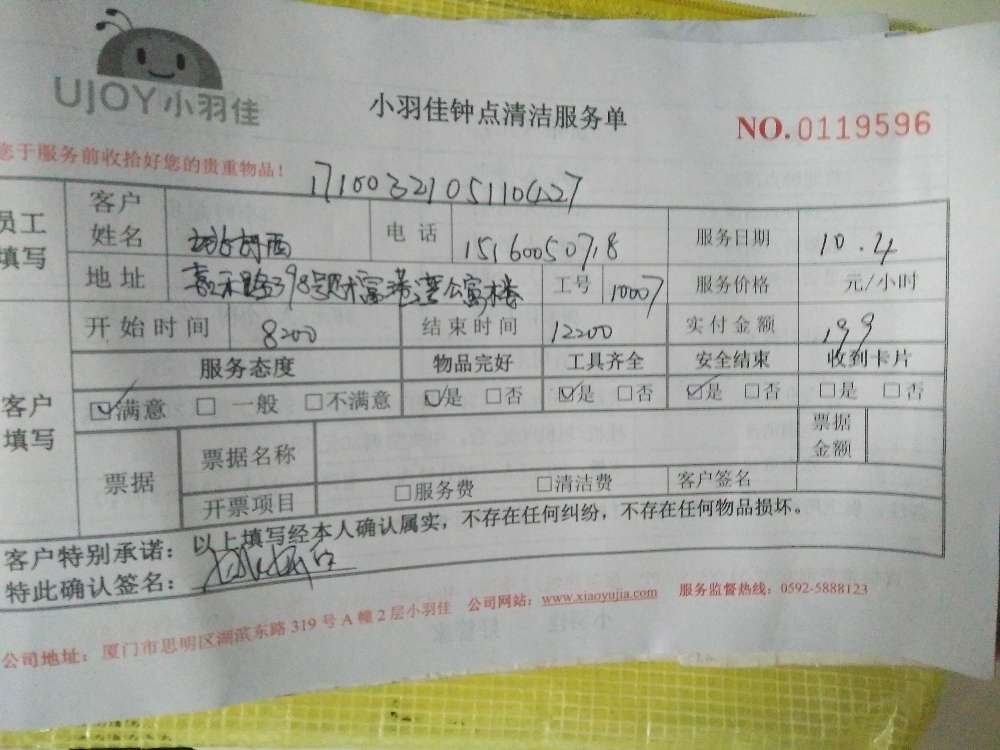 UJOY小羽佳
小羽佳钟点清洁服务单
NO.0119596
您于服务前收拾好您的贵重物品！
1710032105110427
员工填写
客户姓名
电话 15160050718
服务日期 10.4
地址 398号 富港湾公寓楼
工号 10007
服务价格 元/小时
开始时间 8200
结束时间 12200
实付金额 199
客户填写
服务态度 物品完好 工具齐全 安全结束 收到卡片
☑满意 □一般 □不满意 ☑是 □否 ☑是 □否 ☑是 □否 □是 □否
票据 票据名称 票据金额
开票项目 □服务费 □清洁费 客户签名
客户特别承诺：以上填写经本人确认属实，不存在任何纠纷，不存在任何物品损坏。
特此确认签名：
公司地址：厦门市思明区湖滨东路319号A幢2层小羽佳 公司网站：www.xiaoyujia.com 服务监督热线：0592-5888123